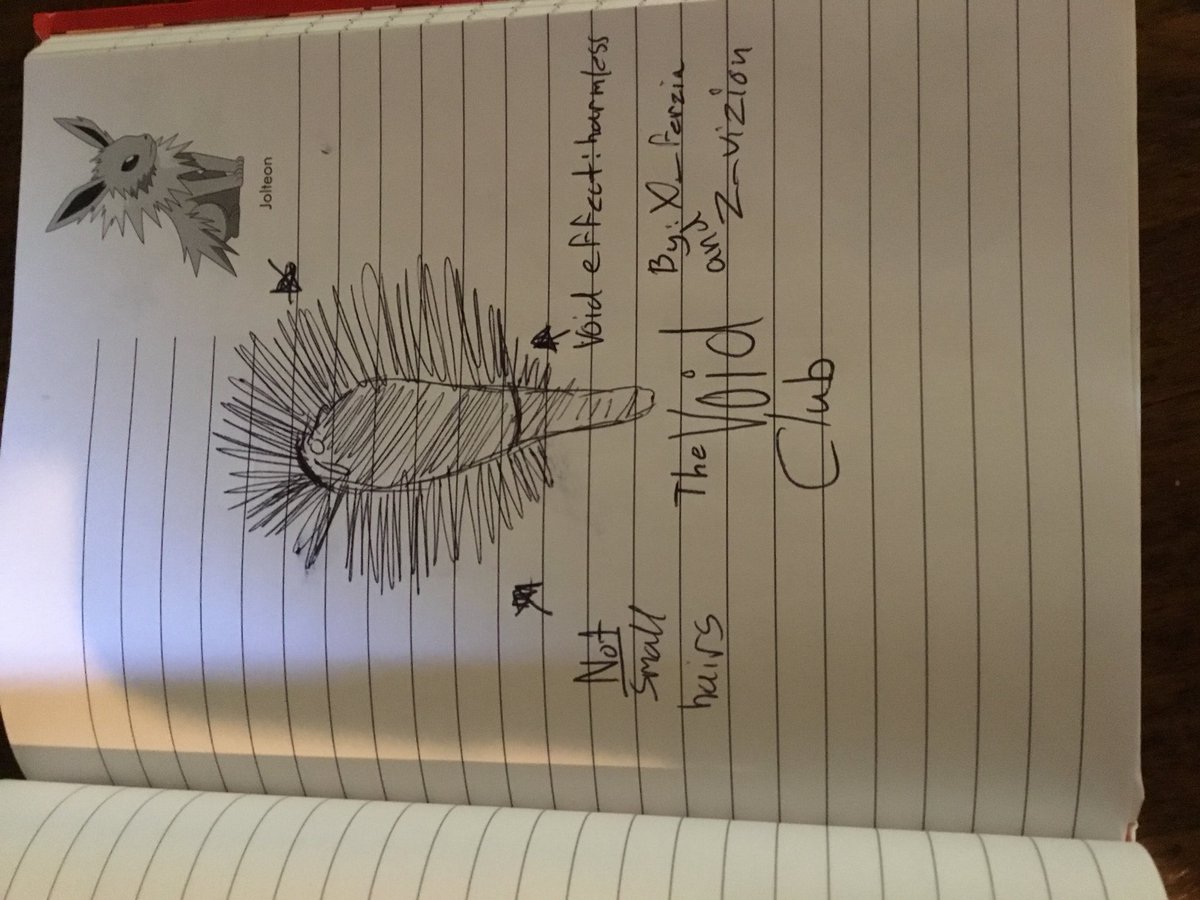 Jolteon
Void effect: harmless
Not
Small
hairs
The Void
Club
By: X_ferzia
and
Z_vizion